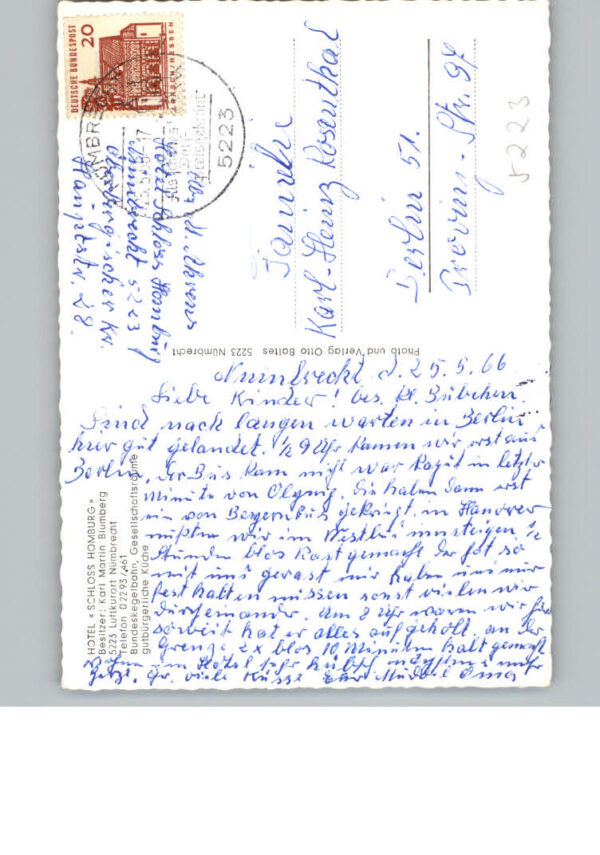 DEUTSCHE BUNDESPOST
20
NÜMBRECHT
5223
H. Ahrens
Hotel Schloss Homburg
Nümbrecht 5223
Oberbergischer Kr.
Hauptstr. 28.
Familie
Karl-Heinz Rosenthal
Berlin 51.
Provinz-Str. 97
5223
Photo und Verlag Otto Baltes 5223 Nümbrecht
HOTEL « SCHLOSS HOMBURG »
Besitzer: Karl Martin Blumberg
5223 Luftkurort Nümbrecht
Telefon 02293/461
Bundeskegelbahn, Gesellschaftsräume
gutbürgerliche Küche
Nümbrecht d. 25.5.66
Liebe Kinder! bes. kl. Bübchen.
Sind nach langen warten in Berlin
hier gut gelandet. ½ 9 Uhr kamen wir erst aus
Berlin, der Bus kam nicht war kaputt in letzter
Minute von Olymp. Sie haben dann erst
ein von Bergerbus gekriegt, in Hanover
mußten wir im Westbus umsteigen ½
Stunden blos Rast gemacht der ist so
mit uns gerast wir haben uns nur
fest halten müssen sonst vielen wir
durcheinander. Am 8 Uhr waren wir hier
soweit hat er alles aufgeholt, an der
Grenze 2x blos 10 Minuten halt gemacht
wohnen im Hotel sehr hübsch nächstens mehr
Gr. viele Küsse Eure Mutti Oma